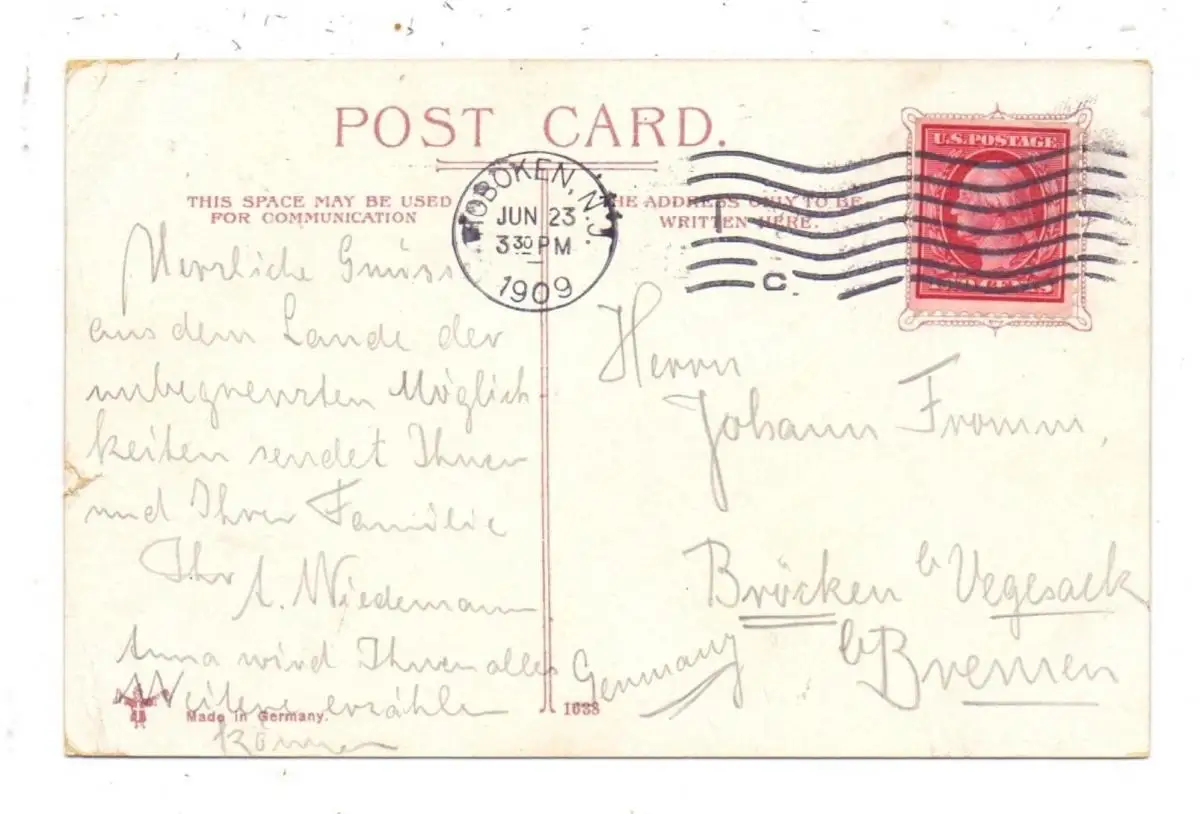 POST CARD.
THIS SPACE MAY BE USED
FOR COMMUNICATION
THE ADDRESS ONLY TO BE
WRITTEN HERE.
HOBOKEN, N.J.
JUN 23
3 30 PM
1909
C
U.S. POSTAGE
TWO CENTS
Herzliche Grüsse
aus dem Lande der
unbegrenzten Möglich
keiten sendet Ihnen
und Ihrer Familie
Ihr
A. Wiedemann
Anna wird Ihnen alles
Weitere erzählen
können
Herrn
Johann Fromm,
Bröcken b Vegesack
b Bremen
Germany
Made in Germany.
1638